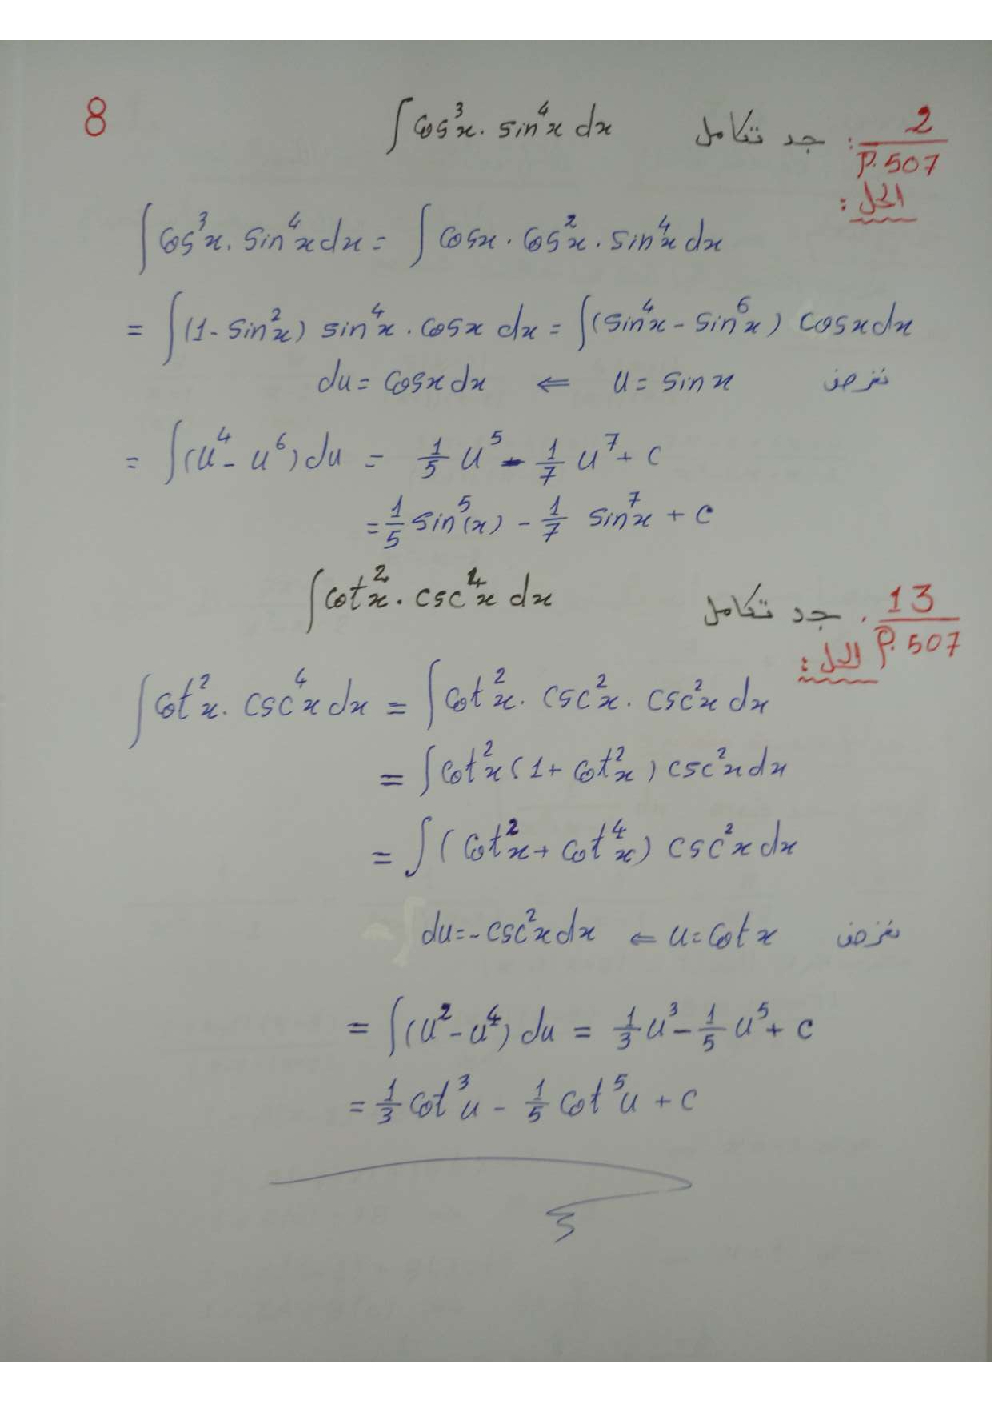 8
2/P.507 : جد تكامل ∫cos³x . sin⁴x dx
الحل :
∫cos³x . sin⁴x dx = ∫cosx . cos²x . sin⁴x dx
= ∫(1 - sin²x) sin⁴x . cosx dx = ∫(sin⁴x - sin⁶x) cosx dx
نفرض u = sin x ⇐ du = cosx dx
= ∫(u⁴ - u⁶) du = 1/5 u⁵ - 1/7 u⁷ + c
= 1/5 sin⁵(x) - 1/7 sin⁷x + c
13/P.507 . جد تكامل ∫cot²x . csc⁴x dx
الحل :
∫cot²x . csc⁴x dx = ∫cot²x . csc²x . csc²x dx
= ∫cot²x (1 + cot²x) csc²x dx
= ∫(cot²x + cot⁴x) csc²x dx
نفرض u = cot x ⇐ du = -csc²x dx
= ∫(u² - u⁴) du = 1/3 u³ - 1/5 u⁵ + c
= 1/3 cot³u - 1/5 cot⁵u + c